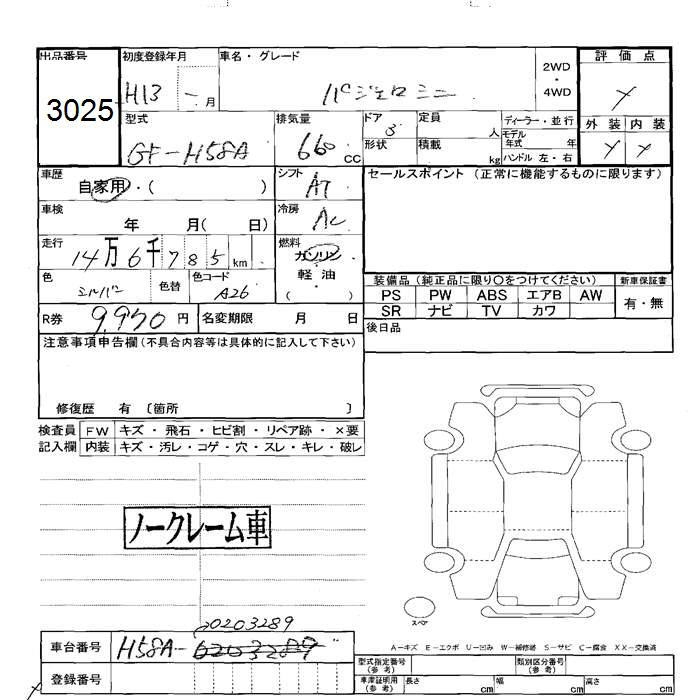 出品番号 初度登録年月 車名・グレード 2WD・4WD 評価点
3025 H13 - 月 パジェロミニ
型式 排気量 ドア 定員 ディーラー・並行 外装 内装
GF-H58A 660 cc 3 人 モデル年式 年
形状 積載 kg ハンドル 左・右
車歴 シフト セールスポイント (正常に機能するものに限ります)
自家用・( ) AT
車検 冷房
年 月( 日) AC
走行 燃料
14万6千785km ガソリン
軽油
( )
色 シルバー 色替 色コード A26
装備品 (純正品に限り○をつけてください) 新車保証書
PS PW ABS エアB AW 有・無
SR ナビ TV カワ
R券 9,950円 名変期限 月 日 後日品
注意事項申告欄 (不具合内容等は具体的に記入して下さい)
修復歴 有 〔箇所 〕
検査員 FW キズ・飛石・ヒビ割・リペア跡・×要
記入欄 内装 キズ・汚レ・コゲ・穴・スレ・キレ・破レ
ノークレーム車
スペア
00203289
A−キズ E−エクボ U−凹み W−補修跡 S−サビ C−腐食 XX−交換済
車台番号 H58A-0203289
型式指定番号 (参考) 類別区分番号 (参考)
登録番号
車庫証明用 (参考) 長さ cm 幅 cm 高さ cm